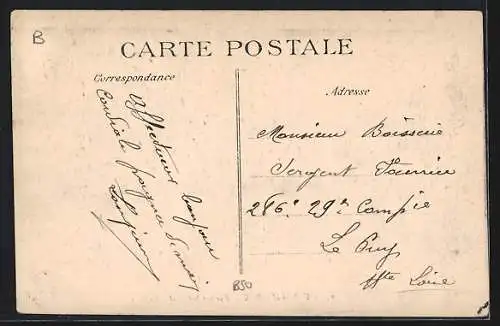 B
CARTE POSTALE
Correspondance
Adresse
Affectueux bonjour
Cordiale poignée de main
Monsieur Boisserie
Sergent
286e 29e Compie
Le Puy
Hte Loire
B50